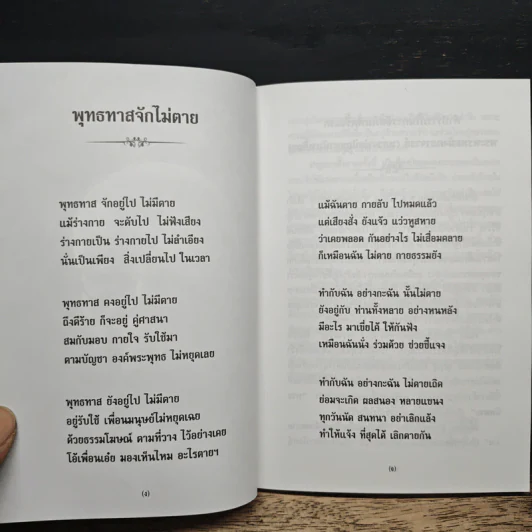 พุทธทาสจักไม่ตาย
พุทธทาส จักอยู่ไป ไม่มีตาย
แม้ร่างกาย จะดับไป ไม่ฟังเสียง
ร่างกายเป็น ร่างกายไป ไม่ลำเอียง
นั่นเป็นเพียง สิ่งเปลี่ยนไป ในเวลา
พุทธทาส คงอยู่ไป ไม่มีตาย
ถึงดีร้าย ก็จะอยู่ คู่ศาสนา
สมกับมอบ กายใจ รับใช้มา
ตามบัญชา องค์พระพุทธ ไม่หยุดเลย
พุทธทาส ยังอยู่ไป ไม่มีตาย
อยู่รับใช้ เพื่อนมนุษย์ไม่หยุดเฉย
ด้วยธรรมโฆษณ์ ตามที่วาง ไว้อย่างเคย
โอ้เพื่อนเอ๋ย มองเห็นไหม อะไรตายฯ
(4)
แม้ฉันตาย กายลับ ไปหมดแล้ว
แต่เสียงสั่ง ยังแจ้ว แว่วหูสหาย
ว่าเคยพลอด กันอย่างไร ไม่เสื่อมคลาย
ก็เหมือนฉัน ไม่ตาย กายธรรมยัง
ทำกับฉัน อย่างกะฉัน นั้นไม่ตาย
ยังอยู่กับ ท่านทั้งหลาย อย่างหนหลัง
มีอะไร มาเขี่ยไค้ ให้กันฟัง
เหมือนฉันนั่ง ร่วมด้วย ช่วยชี้แจง
ทำกับฉัน อย่างกะฉัน ไม่ตายเถิด
ย่อมจะเกิด ผลสนอง หลายแขนง
ทุกวันนัด สนทนา อย่าเลิกแล้ง
ทำให้แจ้ง ที่สุดได้ เลิกตายกัน